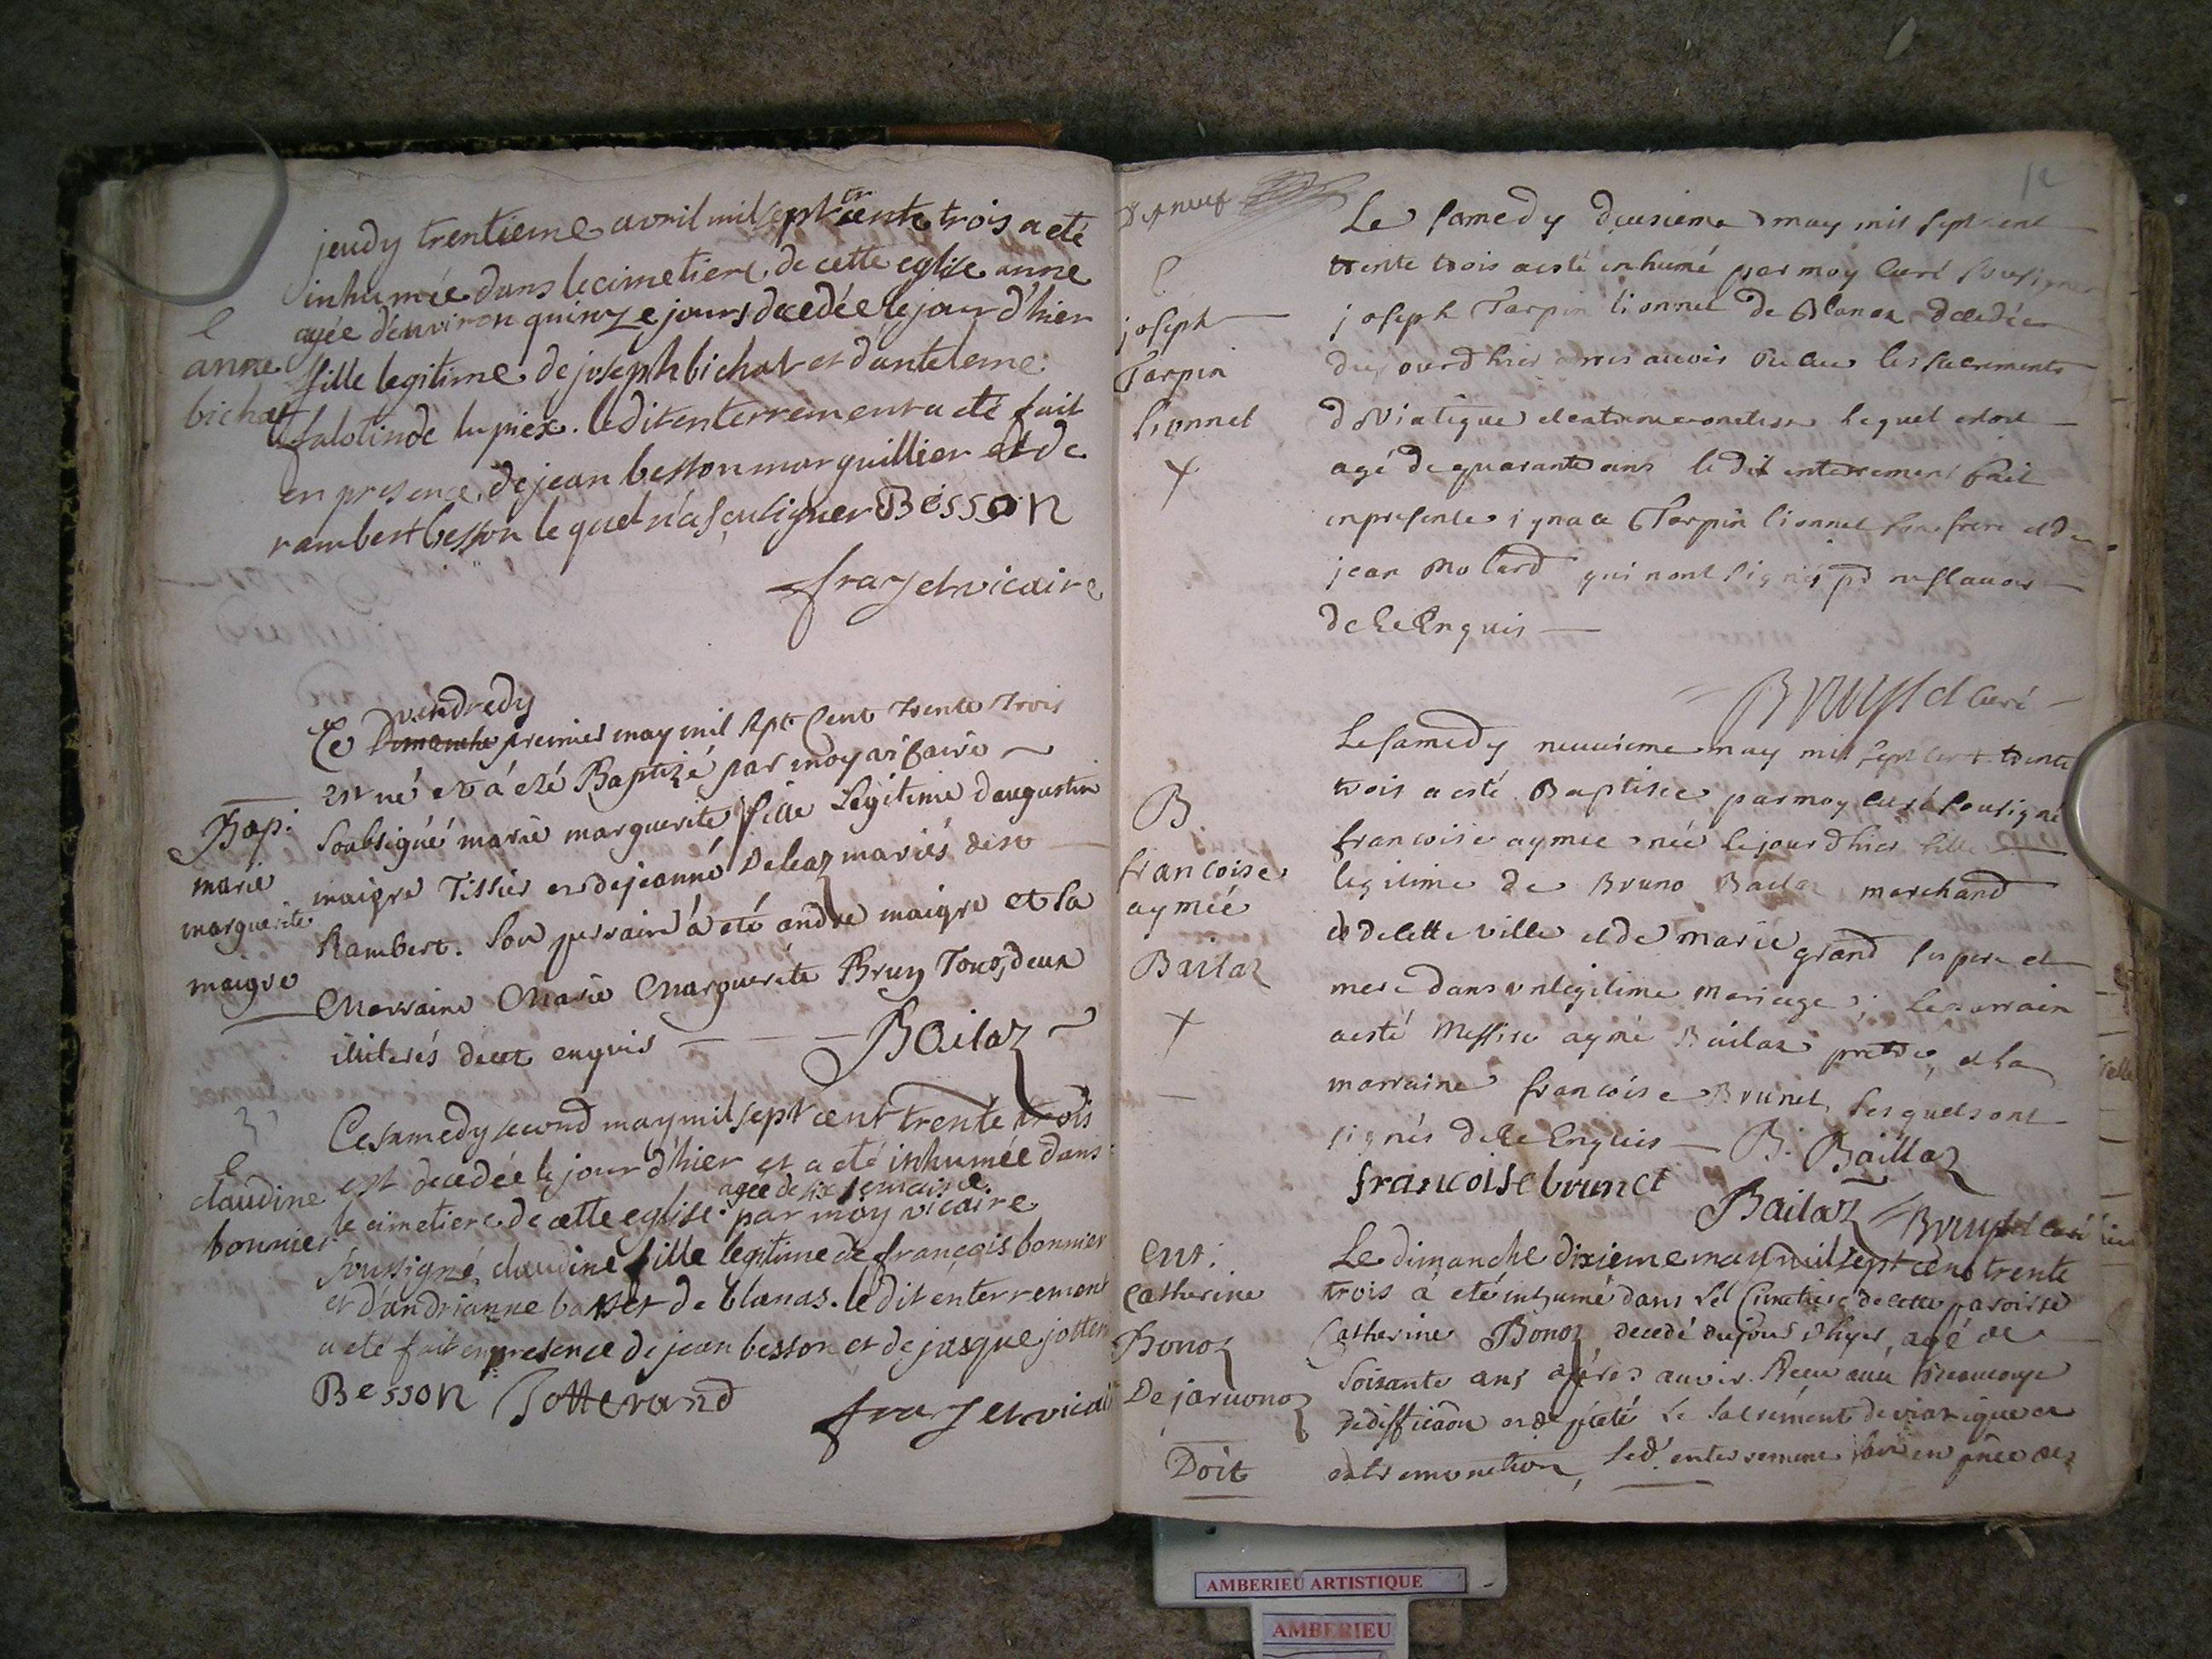 jeudy trentieme avril mil sept cents trois a eté
tr
inhumée dans le cimetiere de cette eglise anne
agée d'environ quinze jours decedée le jour d'hier
fille legitime de joseph bichat et d'anteleme
falotin de lupiex. ledit enterrement a eté fait
en presence de jean besson marguillier et de
rambert besson lequel n'a sçu signer Besson
frajet vicaire
e
anne
bichat
vendredy
Ce Dimanche premier may mil sept Cent trente trois
est né et à eté Baptizé par moy
Soubsigné marie marguerite fille Legitime d'augustin
maigre Tissier et de jeanne Deleaz mariés de st
Rambert. Son parrain à eté andre maigre et la
Marraine Marie Marguerite Bruy Tous deux
illiterés de ce enquis
Bailaz
Bap:
marie
marguerite
maigre
Ce samedy second may mil sept cent trente trois
est decedée le jour d'hier et a eté inhumée dans
agée de six semaine
le cimetiere de cette eglise par moy vicaire
soussigné, claudine fille legitime de françois bonnier
et d'andrianne basset de blanas. ledit enterrement
a eté fait en presence de jean besson et de jasque
Besson Jotterand
frajet
e
claudine
bonnier
12
Le samedy deusieme may mil sept cent
trente trois a esté inhumé par moy curé sousigner
joseph Tarpin lionnet de Blanaz decedée
du jourd'hier apres avoir les sacrements
du Viatique et lequel estoit
agé de quarante ans le dit enterrement fait
en presence ignace Tarpin lionnet son frere et de
jean Molard qui nont signés pr ne scavoir
de ce Enquis
Bruyset curé
joseph
Tarpin
lionnet
Le samedy neuvieme may mil sept cent trente
trois a esté Baptisée par moy curé sousigné
francoise aymée née le jour d'hier fille
legitime de Bruno Bailaz marchand
de cette ville et de marie grand ses pere et
mere dans un légitime mariage; le parrain
a esté Messire aymé Bailaz pretre, et la
marraine francoise Brunet, lesquels ont
signés de ce Enquis B. Baillaz
francoise brunet
Bailaz Bruyset curé
B
francoise
aymée
Bailaz
Le dimanche dixieme may mil sept cent trente
trois à eté inhumé dans le Cimetiere de cette paroisse
Catherine Bonoz decedé du jour d'hyer, agé de
soixante ans après avoir Receu avec beaucoup
d'édiffica͠on et de pieté le sacrément de viatique et
extremonction, led. enterrement fait en p͠nce de
ent.
Catherine
Bonoz
De jarvonoz
Doit
AMBERIEU ARTISTIQUE
AMBERIEU